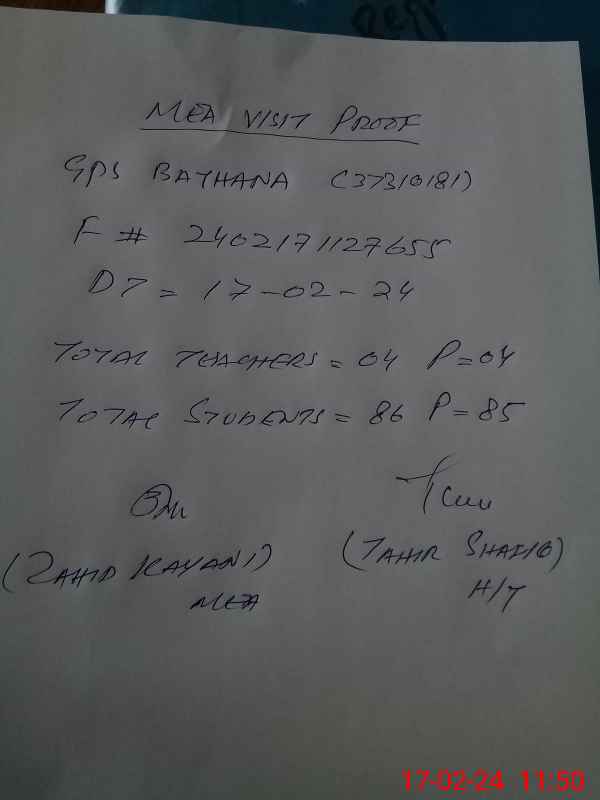 MEA VISIT PROOF
GPS BATHANA (37310181)
F # 2402171127655
DT = 17-02-24
TOTAL TEACHERS = 04 P=04
TOTAL STUDENTS = 86 P=85
(ZAHID KAYANI) (TAHIR SHAFIQ)
MEA H/T
17-02-24 11:50